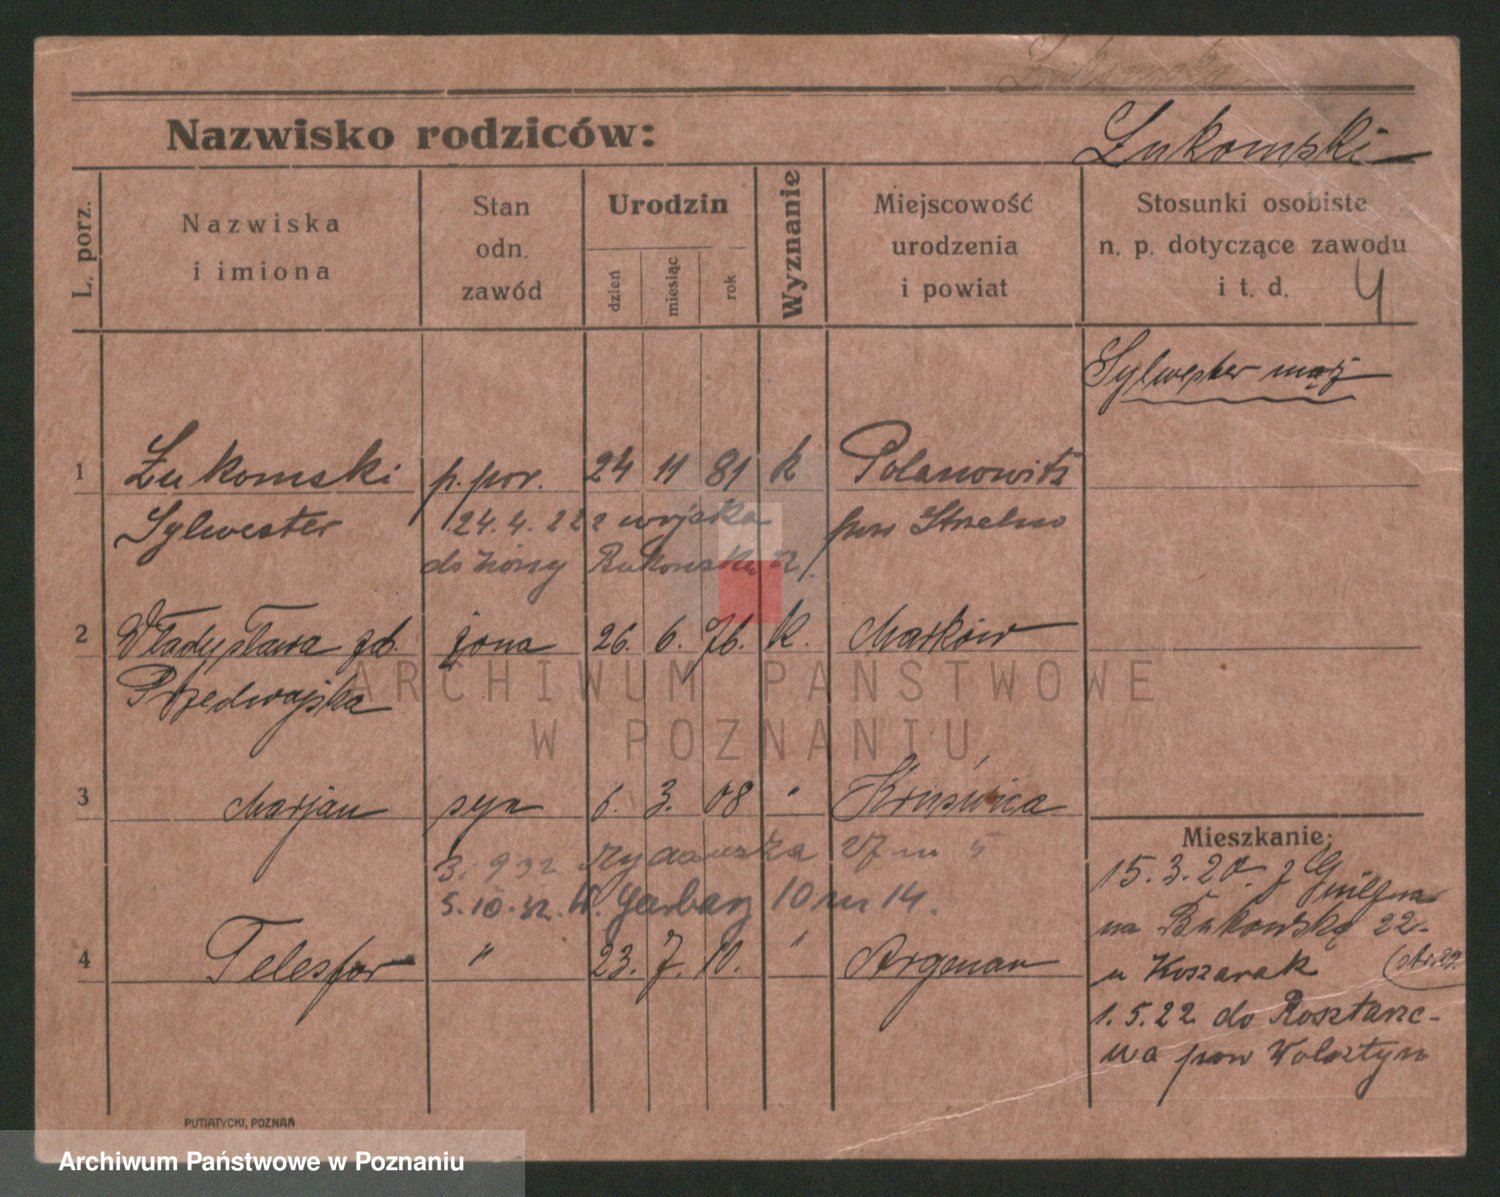 Nazwisko rodziców:
Łukomski
L. porz.
Nazwiska
i imiona
Stan
odn.
zawód
Urodzin
dzień
miesiąc
rok
Wyznanie
Miejscowość
urodzenia
i powiat
Stosunki osobiste
n. p. dotyczące zawodu
i t. d.
4
Sylwester mąż
1 Łukomski p. por. 24 11 81 k Polanowitz
Sylwester 24.4.22 z wojska pow Strzelno
do żony Bukowska 22/.
2 Władysława zd. żona 26. 6. 76. k. Marków
Przedwojska
3 Marjan syn 6. 3. 08 " Kruświca
3. 9 32 27 m 5
5.10.32. W. Garbary 10 m 14.
4 Telesfor " 23. 7. 10. " Argenau
Mieszkanie:
15.3.20. z
na Bukowską 22.
u Koszarak
1.5.22 do Rostarze-
wa pow Wolsztyn
PUTIATYCKI, POZNAŃ
ARCHIWUM PAŃSTWOWE
W POZNANIU
Archiwum Państwowe w Poznaniu